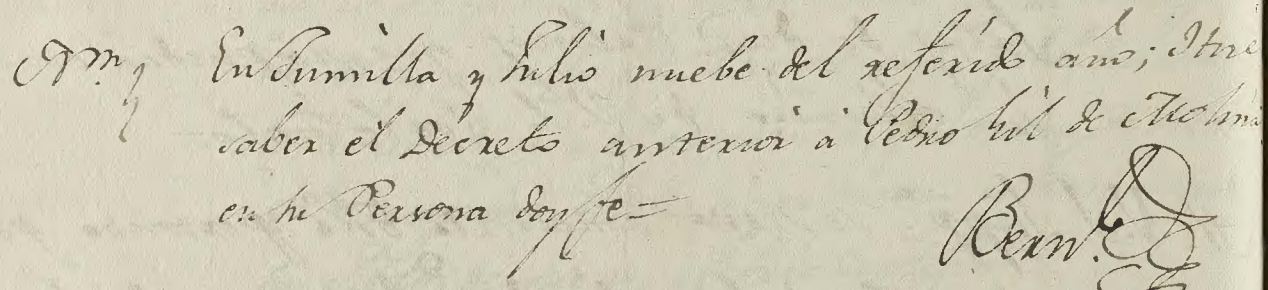 Nn. En Jumilla y Julio nuebe del referido año; Hice
saber el Decreto anterior à Pedro Gil de Molina
en su Persona doy fe =
Bern.